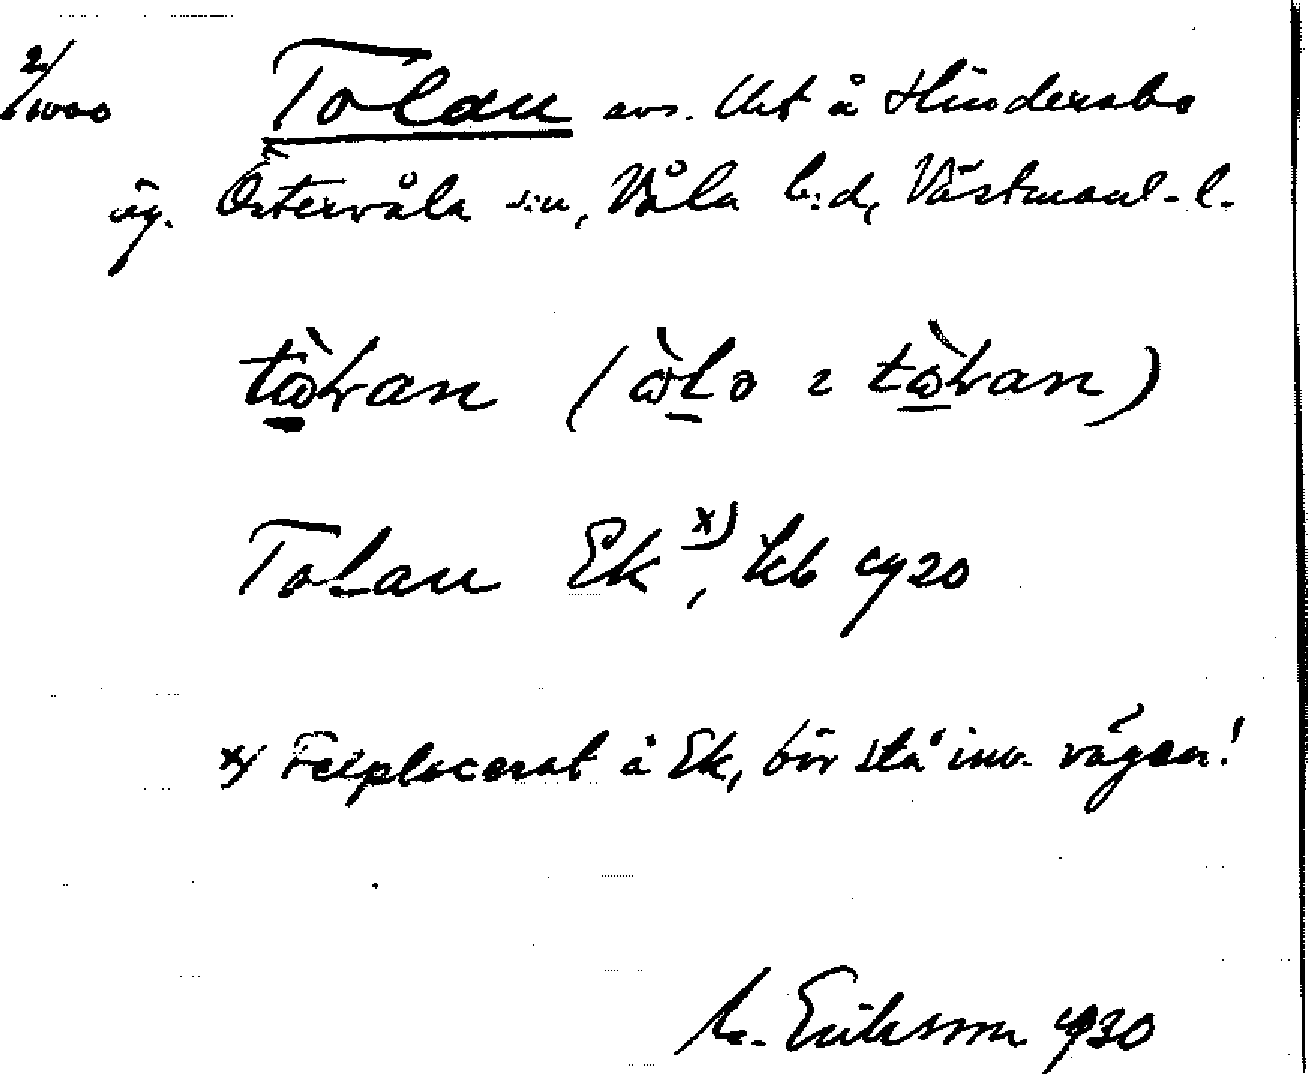 2/1000 Tolan avs. Utt å Hindersbo
äg. Östervåla s:n, Våla h:d, Västmanl. l.
tὼɫan (ὼɫə : tὼɫan)
Tolan Ek x), kb 1920
x) Felplacerat å Ek, bör stå inv. vägen!
M. Eriksson 1930